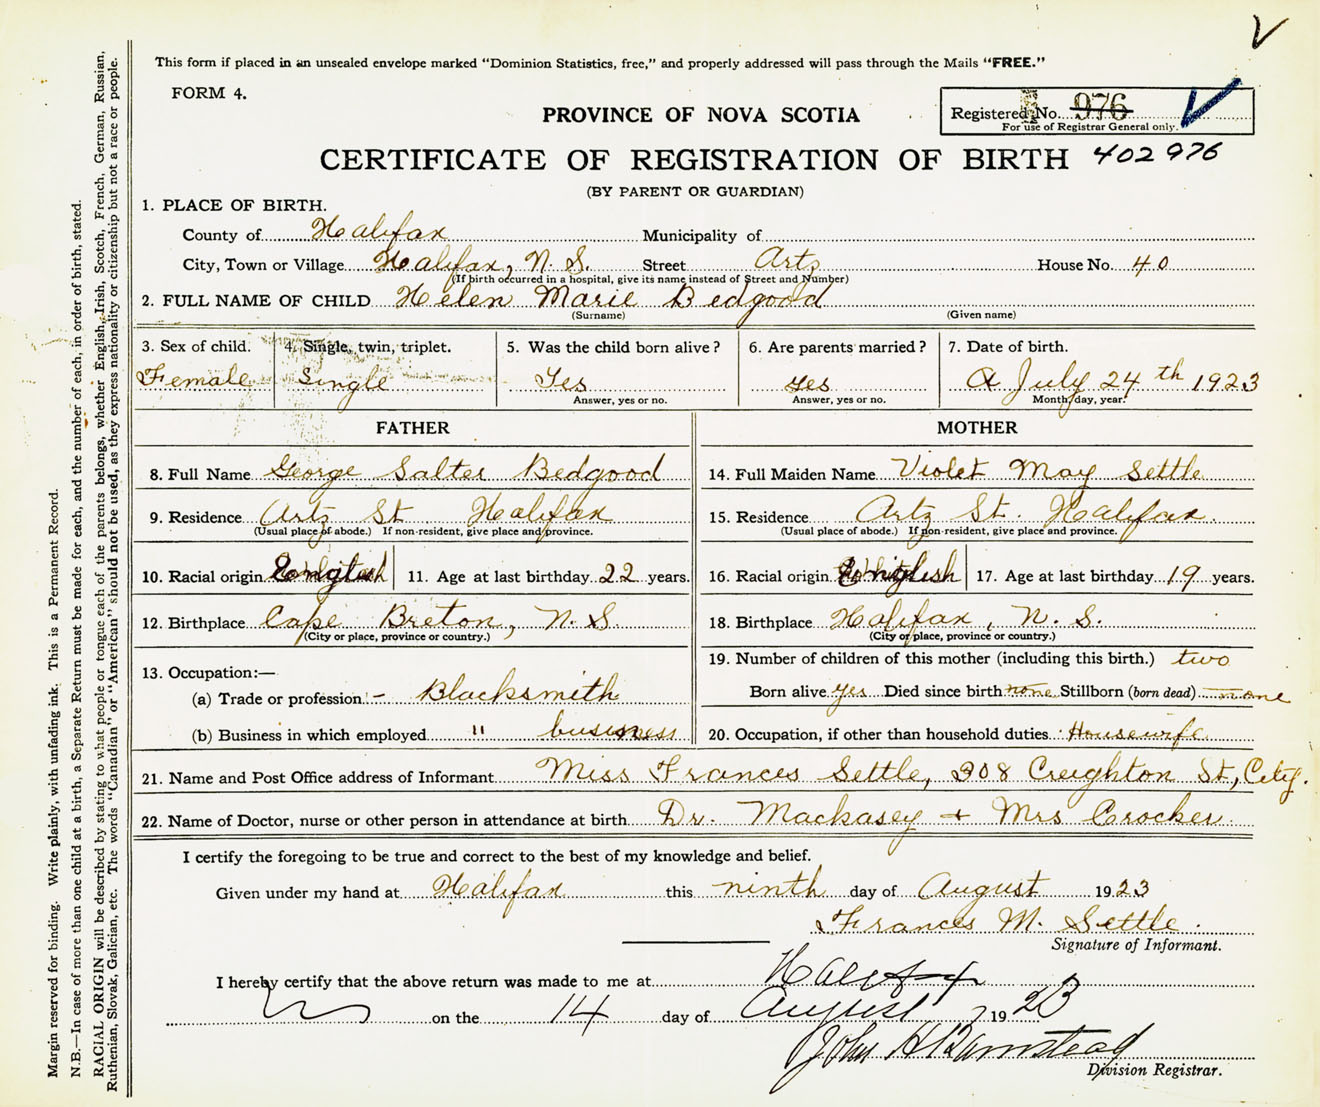 This form if placed in an unsealed envelope marked "Dominion Statistics, free," and properly addressed will pass through the Mails "FREE."
FORM 4.
PROVINCE OF NOVA SCOTIA
Registered No. 976
For use of Registrar General only.
CERTIFICATE OF REGISTRATION OF BIRTH 402976
(BY PARENT OR GUARDIAN)
1. PLACE OF BIRTH.
County of Halifax Municipality of
City, Town or Village Halifax, N. S. Street Artz House No. 40
(If birth occurred in a hospital, give its name instead of Street and Number)
2. FULL NAME OF CHILD Helen Marie Bedgood
(Surname) (Given name)
3. Sex of child. 4. Single, twin, triplet. 5. Was the child born alive? 6. Are parents married? 7. Date of birth.
Female Single Yes yes July 24th 1923
Answer, yes or no. Answer, yes or no. Month, day, year.
FATHER MOTHER
8. Full Name George Salter Bedgood 14. Full Maiden Name Violet May Settle
9. Residence Artz St Halifax 15. Residence Artz St. Halifax.
(Usual place of abode.) If non-resident, give place and province. (Usual place of abode.) If non-resident, give place and province.
10. Racial origin English 11. Age at last birthday 22 years. 16. Racial origin English 17. Age at last birthday 19 years.
12. Birthplace Cape Breton, N. S. 18. Birthplace Halifax, N. S.
(City or place, province or country.) (City or place, province or country.)
13. Occupation:— 19. Number of children of this mother (including this birth.) two
(a) Trade or profession:- Blacksmith Born alive yes Died since birth none Stillborn (born dead) none
(b) Business in which employed " business 20. Occupation, if other than household duties Housewife
21. Name and Post Office address of Informant Miss Frances Settle, 308 Creighton St., City.
22. Name of Doctor, nurse or other person in attendance at birth Dr. Mackasey + Mrs Crocker
I certify the foregoing to be true and correct to the best of my knowledge and belief.
Given under my hand at Halifax this ninth day of August 1923
Frances M. Settle.
Signature of Informant.
I hereby certify that the above return was made to me at Halifax
on the 14 day of August 1923
John H Barnstead
Division Registrar.
Margin reserved for binding. Write plainly, with unfading ink. This is a Permanent Record.
N.B.—In case of more than one child at a birth, a Separate Return must be made for each, and the number of each, in order of birth, stated.
RACIAL ORIGIN will be described by stating to what people or tongue each of the parents belongs, whether English, Irish, Scotch, French, German, Russian,
Ruthenian, Slovak, Galician, etc. The words "Canadian" or "American" should not be used, as they express nationality or citizenship but not a race or people.